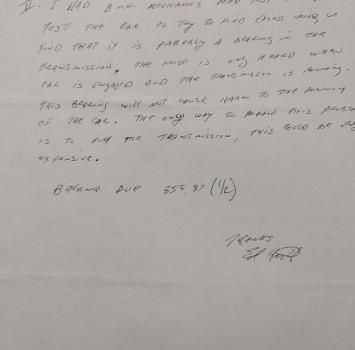 IV. I HAD B.M.W. MECHANICS ROAD
TEST THE CAR TO TRY TO FIND EXCESS NOISE, WE
FIND THAT IT IS PROBABLY A BEARING IN THE
TRANSMISSION, THE NOISE IS ONLY HEARD WHEN
CAR IS ENGAGED AND THE TRANSMISSION IS RUNNING.
THIS BEARING WILL NOT CAUSE HARM TO THE RUNNING
OF THE CAR. THE ONLY WAY TO THIS PROBLEM
IS TO PULL THE TRANSMISSION, THIS COULD BE VERY
EXPENSIVE.
BALANCE DUE 859.87 (1/2)
THANKS
Ed